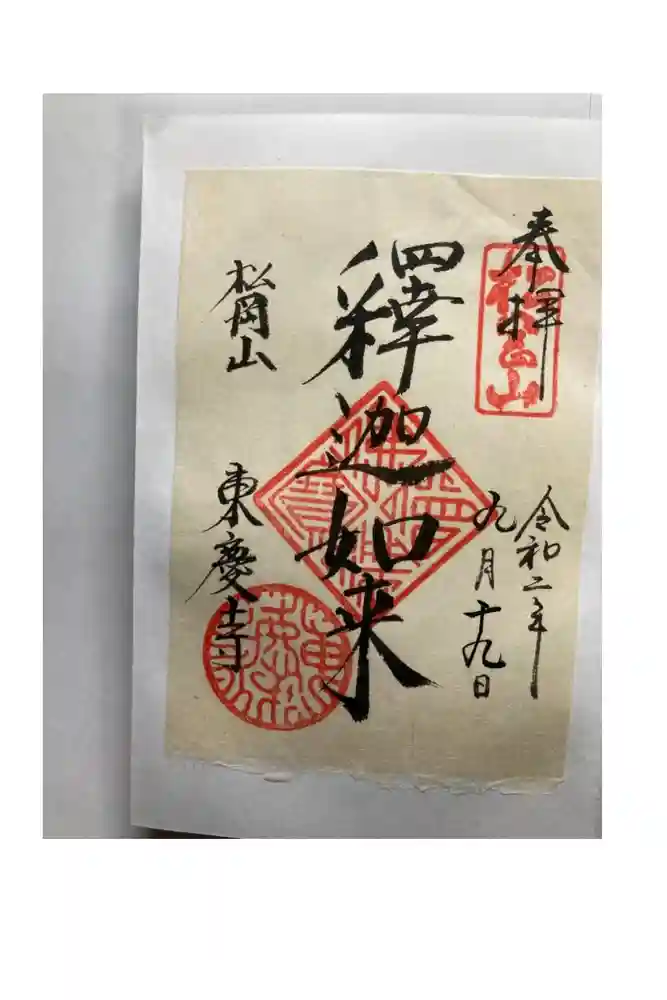 奉拝
令和二年
九月十九日
釋迦如来
松岡山
東慶寺